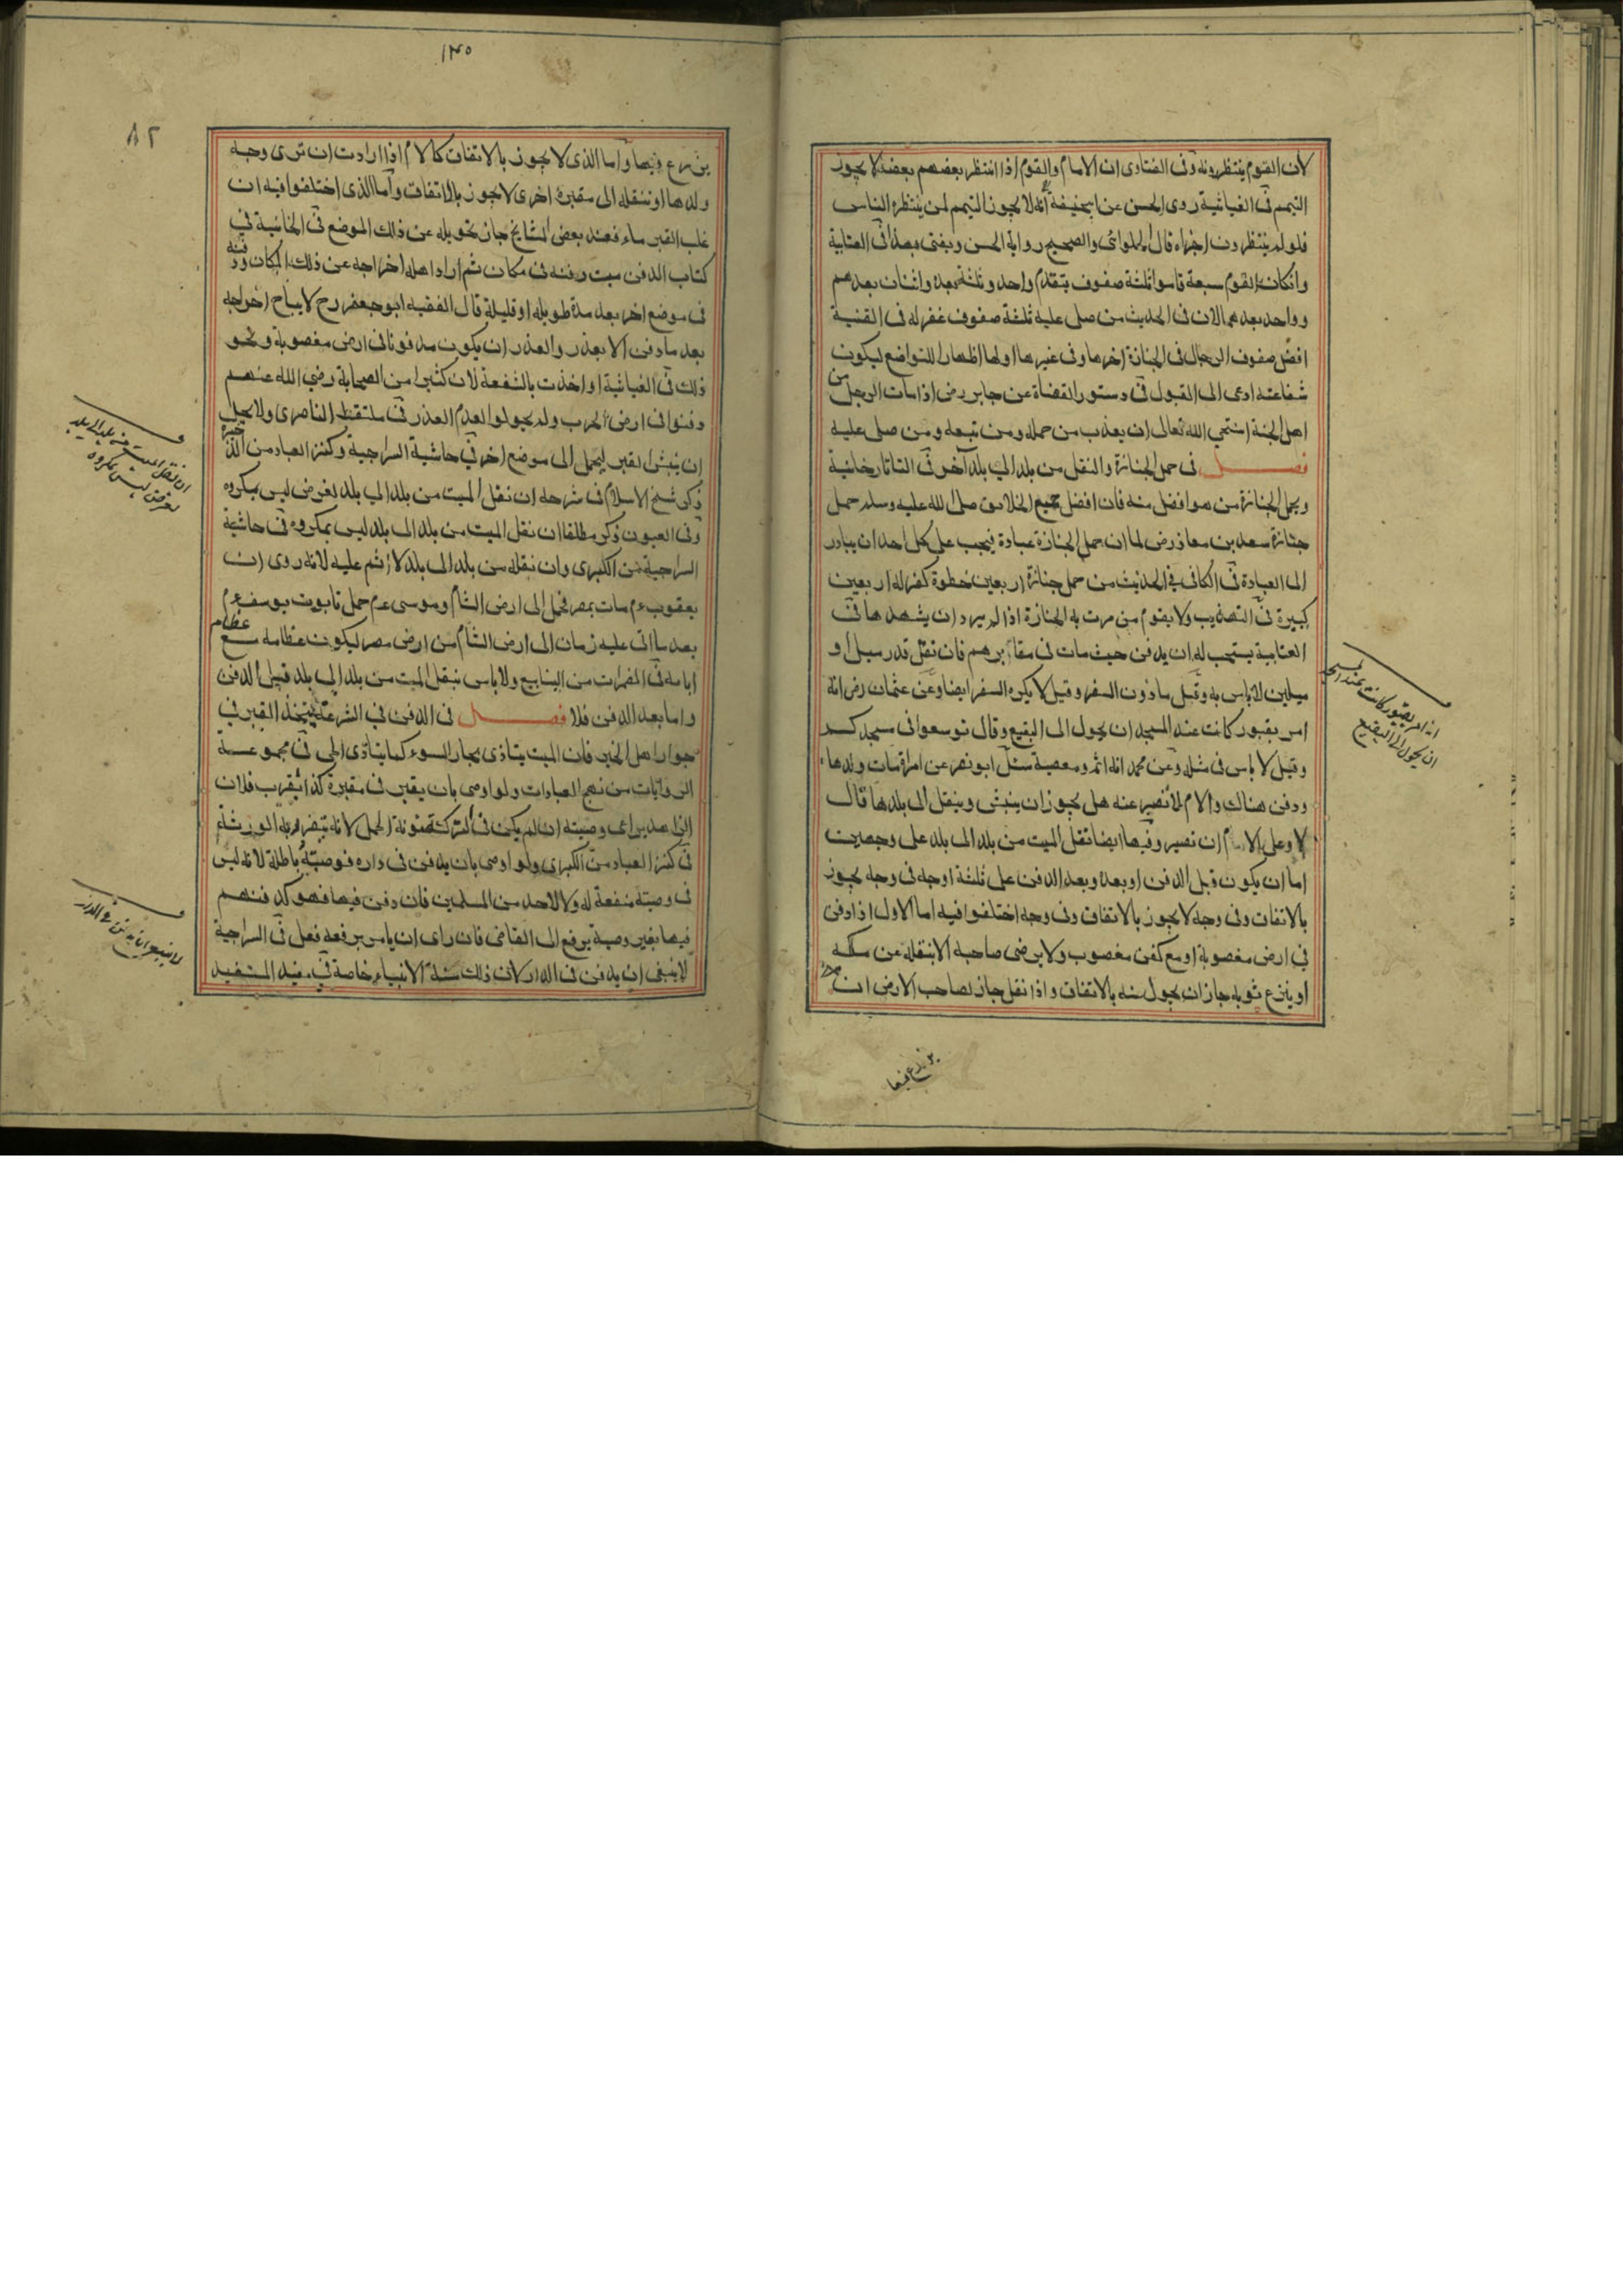 لان القوم ينتظرونه وفى الفتاوى ان الامام والقوم اذا انتظر بعضهم بعضا لا يجوز
التيمم فى الغياثية روى الحسن عن ابيحنيفة انه لا يجوز التيمم لمن ينتظره الناس
فلو لم ينتظرون اجزاه قال الحلوائى والصحيح رواية الحسن ويفتى بهذا فى العتابية
وانكان القوم سبعة قاموا ثلثة صفوف يتقدم واحد وثلثة بعده واثنان بعدهم
وواحد بعدهما لان فى الحديث من صلى عليه ثلثة صفوف غفر له فى القنية
افضل صفوف الرجال فى الجنازة اخرها وفى غيرها اولها اظهارا للتواضع ليكون
شفاعته ادعى الى القبول فى دستور القضاة عن جابر رض اذا مات الرجل من
اهل الجنة استحيى الله تعالى ان يعذب من حمله ومن تبعه ومن صلى عليه
فصل فى حمل الجنازة والنقل من بلد الى بلد آخر فى التاتارخانية
ويحمل الجنازة من هو افضل منه فان افضل جميع الخلايق صلى الله عليه وسلم حمل
جنازة سعد بن معاذ رض لما ان حمل الجنازة عبادة فيجب على كل احد ان يبادر
الى العبادة فى الكافى فى الحديث من حمل جنازة اربعين خطوة كفر له اربعين
كبيرة فى التهذيب ولا يقوم من مرت به الجنازة اذا لم يرد ان يشهدها فى
العتابية يستحب له ان يدفن حيث مات فى مقابرهم فان نقل قدر ميل او
ميلين لا باس به وقيل مادون السفر وقيل لا يكره السفر ايضا وعن عثمان رض انه
امر بقبور كانت عند المسجد ان يحول الى البقيع وقال توسعوا فى مسجدكم
وقيل لا باس فى مثله وعن محمد انه اثم ومعصية سئل ابو نصر عن امراة مات ولدها
ودفن هنالك والام لا تصبر عنه هل يجوز ان ينبش وينقل الى بلدها قال
لا وعلى الام ان تصبر وفيها ايضا نقل الميت من بلد الى بلد على وجهين
اما ان يكون قبل الدفن او بعده وبعد الدفن على ثلثة اوجه فى وجه يجوز
بالاتفاق وفى وجه لا يجوز بالاتفاق وفى وجه اختلفوا فيه اما الاول اذا دفن
فى ارض مغصوبة او مع كفن مغصوب ولا يرضى صاحبه الا بنقله عن ملكه
او ينزع ثوبه جاز ان يحول منه بالاتفاق واذا نقل جاز لصاحب الارض ان
يزرع فيها
انه امر بقبور كانت عند المسجد
ان يحول الى البقيع
١٣٥
٨٢
يزرع فيها واما الذى لا يجوز بالاتفاق كالام اذا ارادت ان ترى وجه
ولدها او تنقله الى مقبرة اخرى لا يجوز بالاتفاق واما الذى اختلفوا فيه ان
غلب القبر ماء فعند بعض المشايخ جاز تحويله عن ذلك الموضع فى الخانية فى
كتاب الدفن ميت دفنه فى مكان ثم اراد اهله اخراجه عن ذلك المكان ودفنه
فى موضع اخر بعد مدة طويلة او قليلة قال الفقيه ابو جعفر رح لا يباح اخراجه
بعد ما دفن الا بعذر والعذر ان يكون مدفونا فى ارض مغصوبة ونحو
ذلك فى الغياثية او اخذت بالشفعة لان كثيرا من الصحابة رضي الله عنهم
دفنوا فى ارض الحرب ولم يحولوا لعدم العذر فى ملتقط الناصرى ولا يحل
ان ينبش القبر ليحمل الى موضع اخر فى حاشية السراجية وكنز العباد من الذخيرة
ذكر شيخ الاسلام فى شرحه ان نقل الميت من بلد الى بلد لغرض ليس بمكروه
وفى العيون ذكر مطلقا ان نقل الميت من بلد الى بلد ليس بمكروه فى حاشية
السراجية من الكبرى وان نقله من بلد الى بلد لا اثم عليه لانه روى ان
يعقوب عم مات بمصر فحمل الى ارض الشام وموسى عم حمل تابوت يوسف عم
بعد ما اتى عليه زمان الى ارض الشام من ارض مصر ليكون عظامه مع عظام
ابائه فى المضمرات من الينابيع ولا باس بنقل الميت من بلد الى بلد قبل الدفن
واما بعد الدفن فلا فصل فى الدفن فى الشرعة يتخذ القبر فى
جوار اهل الخير فان الميت يتاذى بجار السوء كما يتاذى الحى فى مجموعة
الروايات من نهج العبادات ولو اوصى بان يقبر فى مقبرة كذا بقرب فلان
الزاهد يراعى وصيته ان لم يكن فى التركة مؤنة الحمل لانه يتضرر به الورثة
فى كنز العباد من الكبرى ولو اوصى بان يدفن فى داره فوصيته باطلة لانه ليس
فى وصيته منفعة له ولا لاحد من المسلمين فان دفن فيها فهو كدفنهم
فيها بغير وصية يرفع الى القاضى فان راى ان يامر برفعه فعل فى السراجية
لا ينبغى ان يدفن فى الدار لان ذلك سنة الانبياء خاصة فى مفيد المستفيد
ان نقل الميت من بلد الى بلد
لغرض ليس بمكروه
لا ينبغى ان يدفن فى الدار